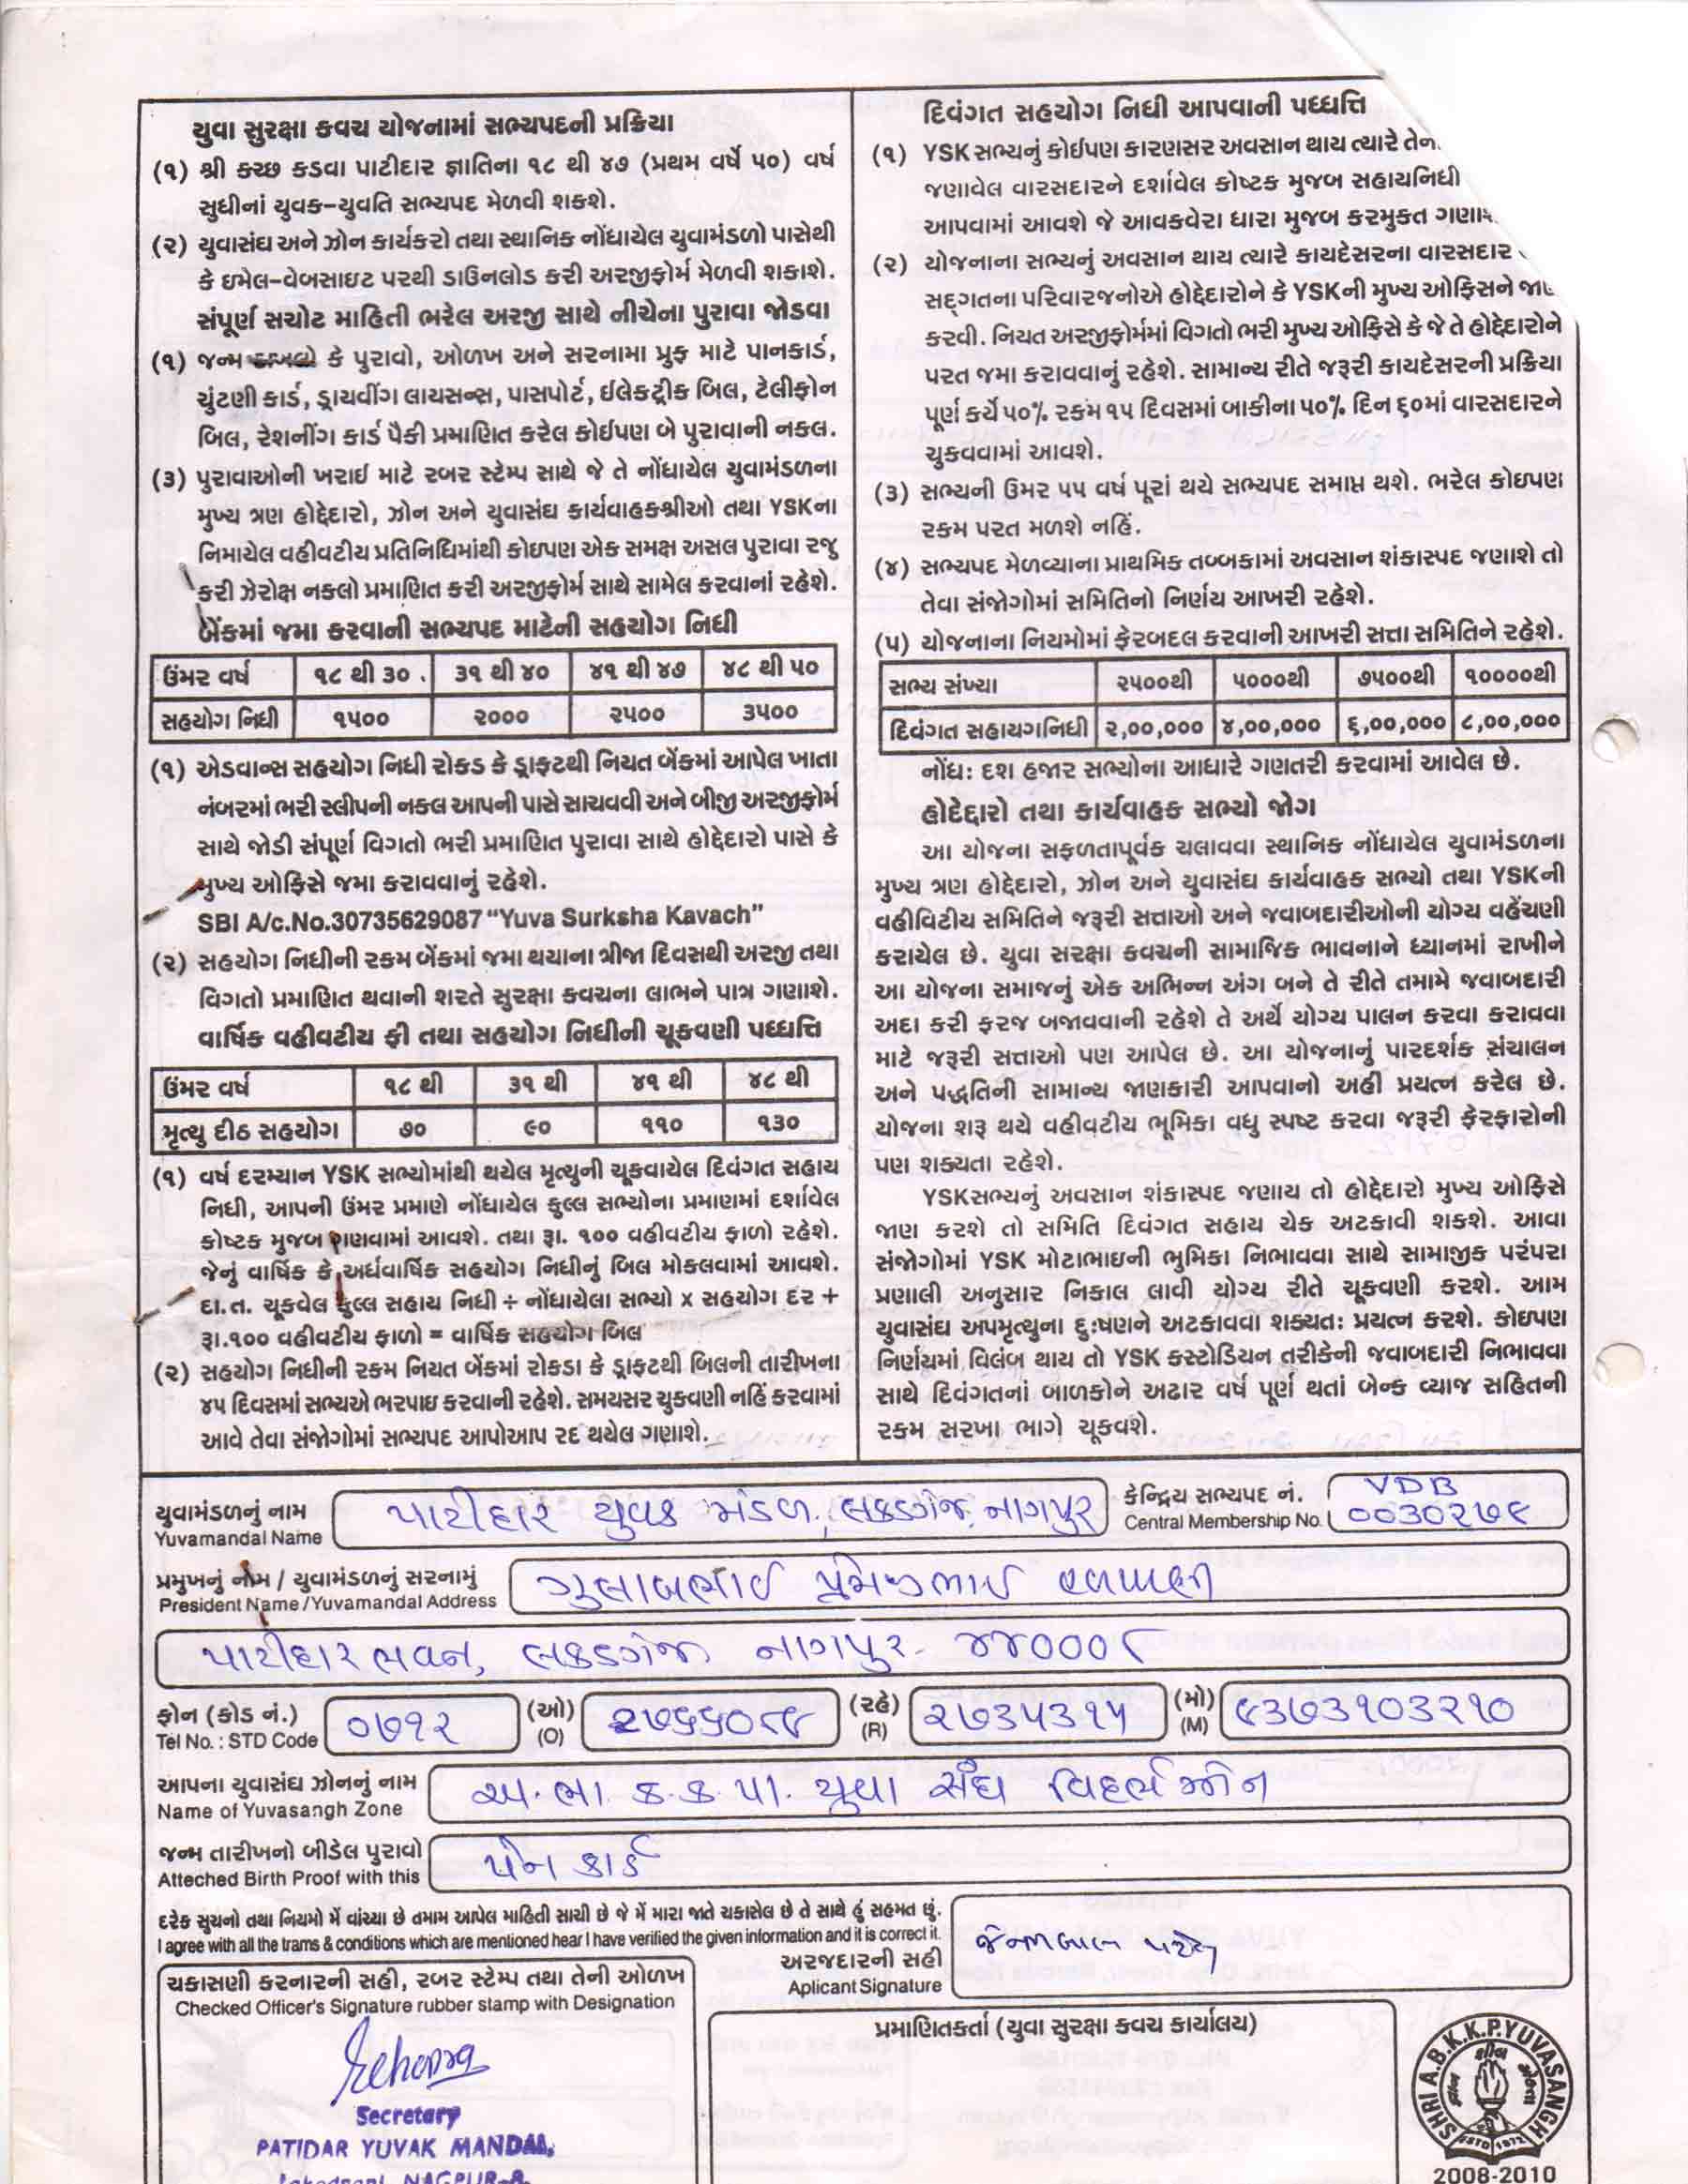 યુવા સુરક્ષા કવચ યોજનામાં સભ્યપદની પ્રક્રિયા
(૧) શ્રી કચ્છ કડવા પાટીદાર જ્ઞાતિના ૧૮ થી ૪૭ (પ્રથમ વર્ષે ૫૦) વર્ષ
સુધીનાં યુવક-યુવતિ સભ્યપદ મેળવી શકશે.
(૨) યુવાસંઘ અને ઝોન કાર્યકરો તથા સ્થાનિક નોંધાયેલ યુવામંડળો પાસેથી
કે ઇમેલ-વેબસાઇટ પરથી ડાઉનલોડ કરી અરજીફોર્મ મેળવી શકાશે.
સંપૂર્ણ સચોટ માહિતી ભરેલ અરજી સાથે નીચેના પુરાવા જોડવા
(૧) જન્મ દાખલો કે પુરાવો, ઓળખ અને સરનામા પ્રુફ માટે પાનકાર્ડ,
ચુંટણી કાર્ડ, ડ્રાયવીંગ લાયસન્સ, પાસપોર્ટ, ઈલેકટ્રીક બિલ, ટેલીફોન
બિલ, રેશનીંગ કાર્ડ પૈકી પ્રમાણિત કરેલ કોઈપણ બે પુરાવાની નકલ.
(૩) પુરાવાઓની ખરાઇ માટે રબર સ્ટેમ્પ સાથે જે તે નોંધાયેલ યુવામંડળના
મુખ્ય ત્રણ હોદ્દેદારો, ઝોન અને યુવાસંઘ કાર્યવાહકશ્રીઓ તથા YSKના
નિમાયેલ વહીવટીય પ્રતિનિધિમાંથી કોઇપણ એક સમક્ષ અસલ પુરાવા રજુ
કરી ઝેરોક્ષ નકલો પ્રમાણિત કરી અરજીફોર્મ સાથે સામેલ કરવાનાં રહેશે.
બેંકમાં જમા કરવાની સભ્યપદ માટેની સહયોગ નિધી
ઉંમર વર્ષ ૧૮ થી ૩૦ . ૩૧ થી ૪૦ ૪૧ થી ૪૭ ૪૮ થી ૫૦
સહયોગ નિધી ૧૫૦૦ ૨૦૦૦ ૨૫૦૦ ૩૫૦૦
(૧) એડવાન્સ સહયોગ નિધી રોકડ કે ડ્રાફટથી નિયત બેંકમાં આપેલ ખાતા
નંબરમાં ભરી સ્લીપની નકલ આપની પાસે સાચવવી અને બીજી અરજીફોર્મ
સાથે જોડી સંપૂર્ણ વિગતો ભરી પ્રમાણિત પુરાવા સાથે હોદ્દેદારો પાસે કે
મુખ્ય ઓફિસે જમા કરાવવાનું રહેશે.
SBI A/c.No.30735629087 “Yuva Surksha Kavach”
(૨) સહયોગ નિધીની રકમ બેંકમાં જમા થયાના ત્રીજા દિવસથી અરજી તથા
વિગતો પ્રમાણિત થવાની શરતે સુરક્ષા કવચના લાભને પાત્ર ગણાશે.
વાર્ષિક વહીવટીય ફી તથા સહયોગ નિધીની ચૂકવણી પધ્ધત્તિ
ઉંમર વર્ષ ૧૮ થી ૩૧ થી ૪૧ થી ૪૮ થી
મૃત્યુ દીઠ સહયોગ ૭૦ ૯૦ ૧૧૦ ૧૩૦
(૧) વર્ષ દરમ્યાન YSK સભ્યોમાંથી થયેલ મૃત્યુની ચૂકવાયેલ દિવંગત સહાય
નિધી, આપની ઉંમર પ્રમાણે નોંધાયેલ કુલ્લ સભ્યોના પ્રમાણમાં દર્શાવેલ
કોષ્ટક મુજબ ગણવામાં આવશે. તથા રૂા. ૧૦૦ વહીવટીય ફાળો રહેશે.
જેનું વાર્ષિક કે અર્ધવાર્ષિક સહયોગ નિધીનું બિલ મોકલવામાં આવશે.
દા.ત. ચૂકવેલ કુલ્લ સહાય નિધી ÷ નોંધાયેલા સભ્યો x સહયોગ દર +
રૂા.૧૦૦ વહીવટીય ફાળો = વાર્ષિક સહયોગ બિલ
(૨) સહયોગ નિધીની રકમ નિયત બેંકમાં રોકડા કે ડ્રાફટથી બિલની તારીખના
૪૫ દિવસમાં સભ્યએ ભરપાઇ કરવાની રહેશે. સમયસર ચુકવણી નહિં કરવામાં
આવે તેવા સંજોગોમાં સભ્યપદ આપોઆપ રદ થયેલ ગણાશે.
દિવંગત સહયોગ નિધી આપવાની પધ્ધત્તિ
(૧) YSK સભ્યનું કોઈપણ કારણસર અવસાન થાય ત્યારે
જણાવેલ વારસદારને દર્શાવેલ કોષ્ટક મુજબ સહાયનિધી
આપવામાં આવશે જે આવકવેરા ધારા મુજબ કરમુક્ત
(૨) યોજનાના સભ્યનું અવસાન થાય ત્યારે કાયદેસરના વારસદાર
સદ્ગતના પરિવારજનોએ હોદ્દેદારોને કે YSKની મુખ્ય ઓફિસને
કરવી. નિયત અરજીફોર્મમાં વિગતો ભરી મુખ્ય ઓફિસે કે જે તે હોદ્દેદારોને
પરત જમા કરાવવાનું રહેશે. સામાન્ય રીતે જરૂરી કાયદેસરની પ્રક્રિયા
પૂર્ણ કર્યે ૫૦% રકમ ૧૫ દિવસમાં બાકીના ૫૦% દિન ૬૦માં વારસદારને
ચુકવવામાં આવશે.
(૩) સભ્યની ઉમર ૫૫ વર્ષ પૂરાં થયે સભ્યપદ સમાપ્ત થશે. ભરેલ કોઇપણ
રકમ પરત મળશે નહિં.
(૪) સભ્યપદ મેળવ્યાના પ્રાથમિક તબ્બકામાં અવસાન શંકાસ્પદ જણાશે તો
તેવા સંજોગોમાં સમિતિનો નિર્ણય આખરી રહેશે.
(૫) યોજનાના નિયમોમાં ફેરબદલ કરવાની આખરી સત્તા સમિતિને રહેશે.
સભ્ય સંખ્યા ૨૫૦૦થી ૫૦૦૦થી ૭૫૦૦થી ૧૦૦૦૦થી
દિવંગત સહાયગનિધી ૨,૦૦,૦૦૦ ૪,૦૦,૦૦૦ ૬,૦૦,૦૦૦ ૮,૦૦,૦૦૦
નોંધ: દશ હજાર સભ્યોના આધારે ગણતરી કરવામાં આવેલ છે.
હોદેદ્દારો તથા કાર્યવાહક સભ્યો જોગ
આ યોજના સફળતાપૂર્વક ચલાવવા સ્થાનિક નોંધાયેલ યુવામંડળના
મુખ્ય ત્રણ હોદ્દેદારો, ઝોન અને યુવાસંઘ કાર્યવાહક સભ્યો તથા YSKની
વહીવિટીય સમિતિને જરૂરી સત્તાઓ અને જવાબદારીઓની યોગ્ય વહેંચણી
કરાયેલ છે. યુવા સરક્ષા કવચની સામાજિક ભાવનાને ધ્યાનમાં રાખીને
આ યોજના સમાજનું એક અભિન્ન અંગ બને તે રીતે તમામે જવાબદારી
અદા કરી ફરજ બજાવવાની રહેશે તે અર્થે યોગ્ય પાલન કરવા કરાવવા
માટે જરૂરી સત્તાઓ પણ આપેલ છે. આ યોજનાનું પારદર્શક સંચાલન
અને પદ્ધતિની સામાન્ય જાણકારી આપવાનો અહીં પ્રયત્ન કરેલ છે.
યોજના શરૂ થયે વહીવટીય ભૂમિકા વધુ સ્પષ્ટ કરવા જરૂરી ફેરફારોની
પણ શક્યતા રહેશે.
YSKસભ્યનું અવસાન શંકાસ્પદ જણાય તો હોદ્દેદારો મુખ્ય ઓફિસે
જાણ કરશે તો સમિતિ દિવંગત સહાય ચેક અટકાવી શકશે. આવા
સંજોગોમાં YSK મોટાભાઇની ભુમિકા નિભાવવા સાથે સામાજીક પરંપરા
પ્રણાલી અનુસાર નિકાલ લાવી યોગ્ય રીતે ચૂકવણી કરશે. આમ
યુવાસંઘ અપમૃત્યુના દુ:ષણને અટકાવવા શક્યત: પ્રયત્ન કરશે. કોઇપણ
નિર્ણયમાં વિલંબ થાય તો YSK કસ્ટોડિયન તરીકેની જવાબદારી નિભાવવા
સાથે દિવંગતનાં બાળકોને અઢાર વર્ષ પૂર્ણ થતાં બેન્ક વ્યાજ સહિતની
રકમ સરખા ભાગે ચૂકવશે.
યુવામંડળનું નામ પાટીદાર યુવક મંડળ, લકડગંજ, નાગપુર કેન્દ્રિય સભ્યપદ નં. VDB
Yuvamandal Name Central Membership No. ૦૦૩૦૨૭૯
પ્રમુખનું નામ / યુવામંડળનું સરનામું ગુલાબભાઈ પ્રેમજીભાઈ
President Name /Yuvamandal Address
પાટીદાર ભવન, લકડગંજ નાગપુર- ૪૪૦૦૦૮
ફોન (કોડ નં.) ૦૭૧૨ (ઓ) ૨૭૬૬૦૮૯ (રહે) ૨૭૩૫૩૧૫ (મો) ૯૩૭૩૧૦૩૨૧૦
Tel No. : STD Code (O) (R) (M)
આપના યુવાસંઘ ઝોનનું નામ અ. ભા. ક. ક. પા. યુવા સંઘ વિદર્ભ ઝોન
Name of Yuvasangh Zone
જન્મ તારીખનો બીડેલ પુરાવો પેન કાર્ડ
Atteched Birth Proof with this
દરેક સુચનો તથા નિયમો મેં વાંચ્યા છે તમામ આપેલ માહિતી સાચી છે જે મેં મારા જાતે ચકાસેલ છે તે સાથે હું સહમત છું.
I agree with all the trams & conditions which are mentioned hear I have verified the given information and it is correct it.
અરજદારની સહી
Aplicant Signature
ચકાસણી કરનારની સહી, રબર સ્ટેમ્પ તથા તેની ઓળખ
Checked Officer's Signature rubber stamp with Designation
Secretary
PATIDAR YUVAK MANDAL,
Lakadganj, NAGPUR-8.
પ્રમાણિતકર્તા (યુવા સુરક્ષા કવચ કાર્યાલય)
SHRI A.B.K.K.P.YUVASANGH
ESTD 1972
2008-2010